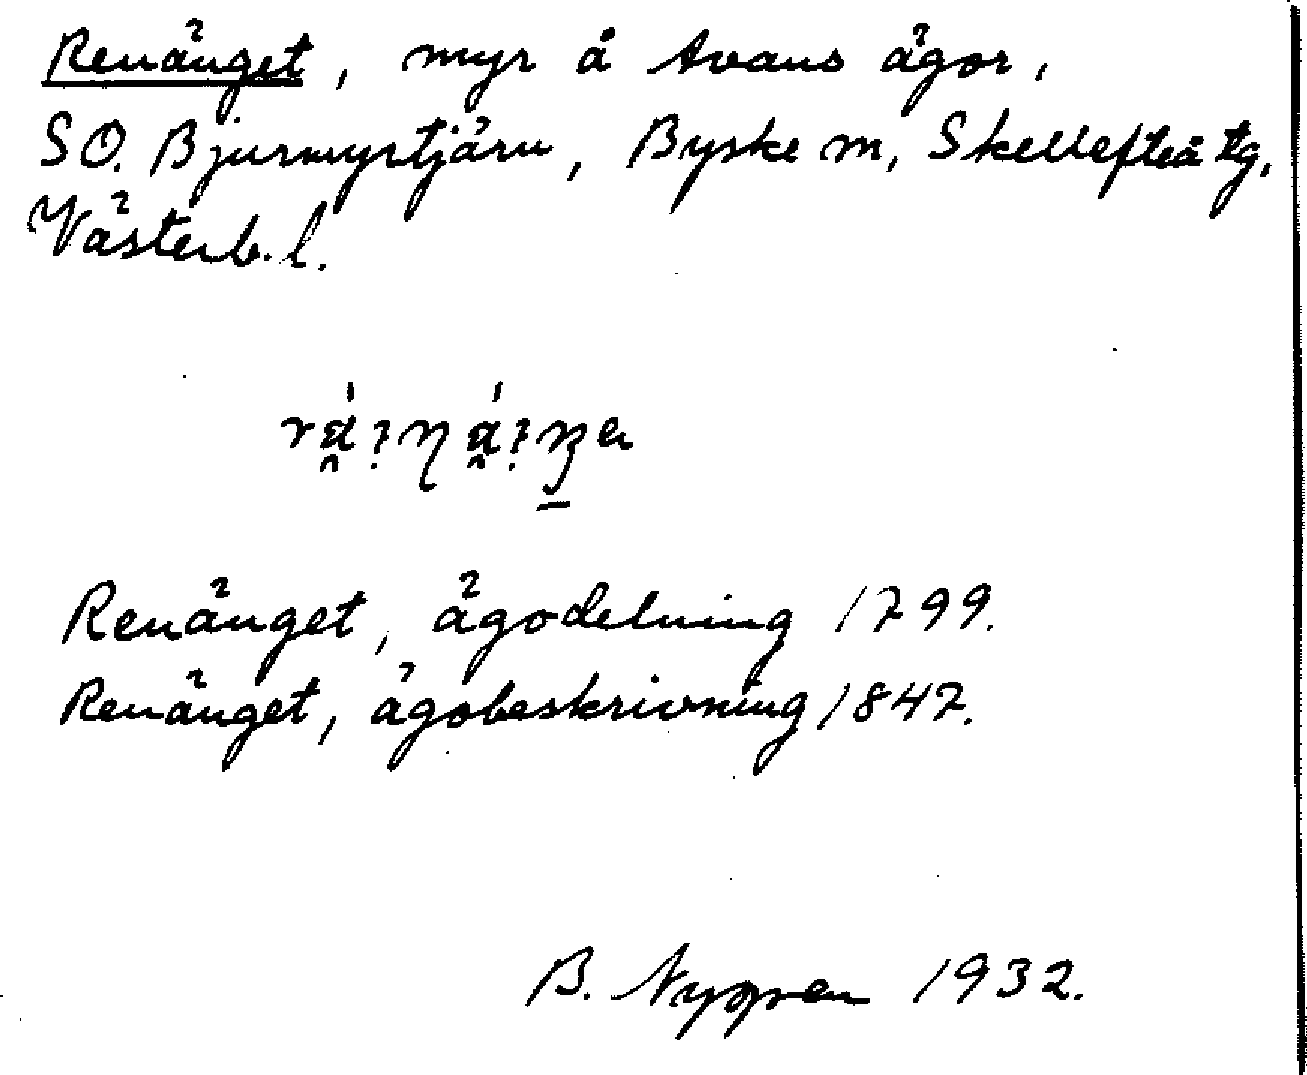 Renänget, myr å Avans ägor,
SO. Bjurmyrtjärn, Byske m, Skellefteå tg,
Västerb. l.
Renänget, ägodelning 1799.
Renänget, ägobeskrivning 1847.
B. Nygren 1932.